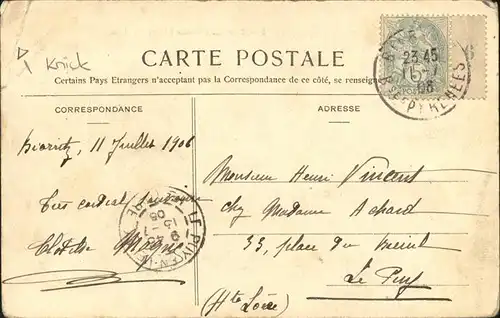 Krück
CARTE POSTALE
Certains Pays Etrangers n'acceptant pas la Correspondance de ce côté, se renseigner
CORRESPONDANCE
ADRESSE
Biarritz, 11 Juillet 1906
Très cordial souvenir
Clotilde
Monsieur Henri Vincent
chez Madame Achard
33, place du Breuil
Le Puy
(Hte Loire)
23 45
PYRENEES
LE PUY